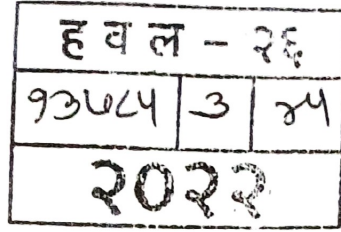 हवल - २६
१३७८५ ३ २५
२०२२